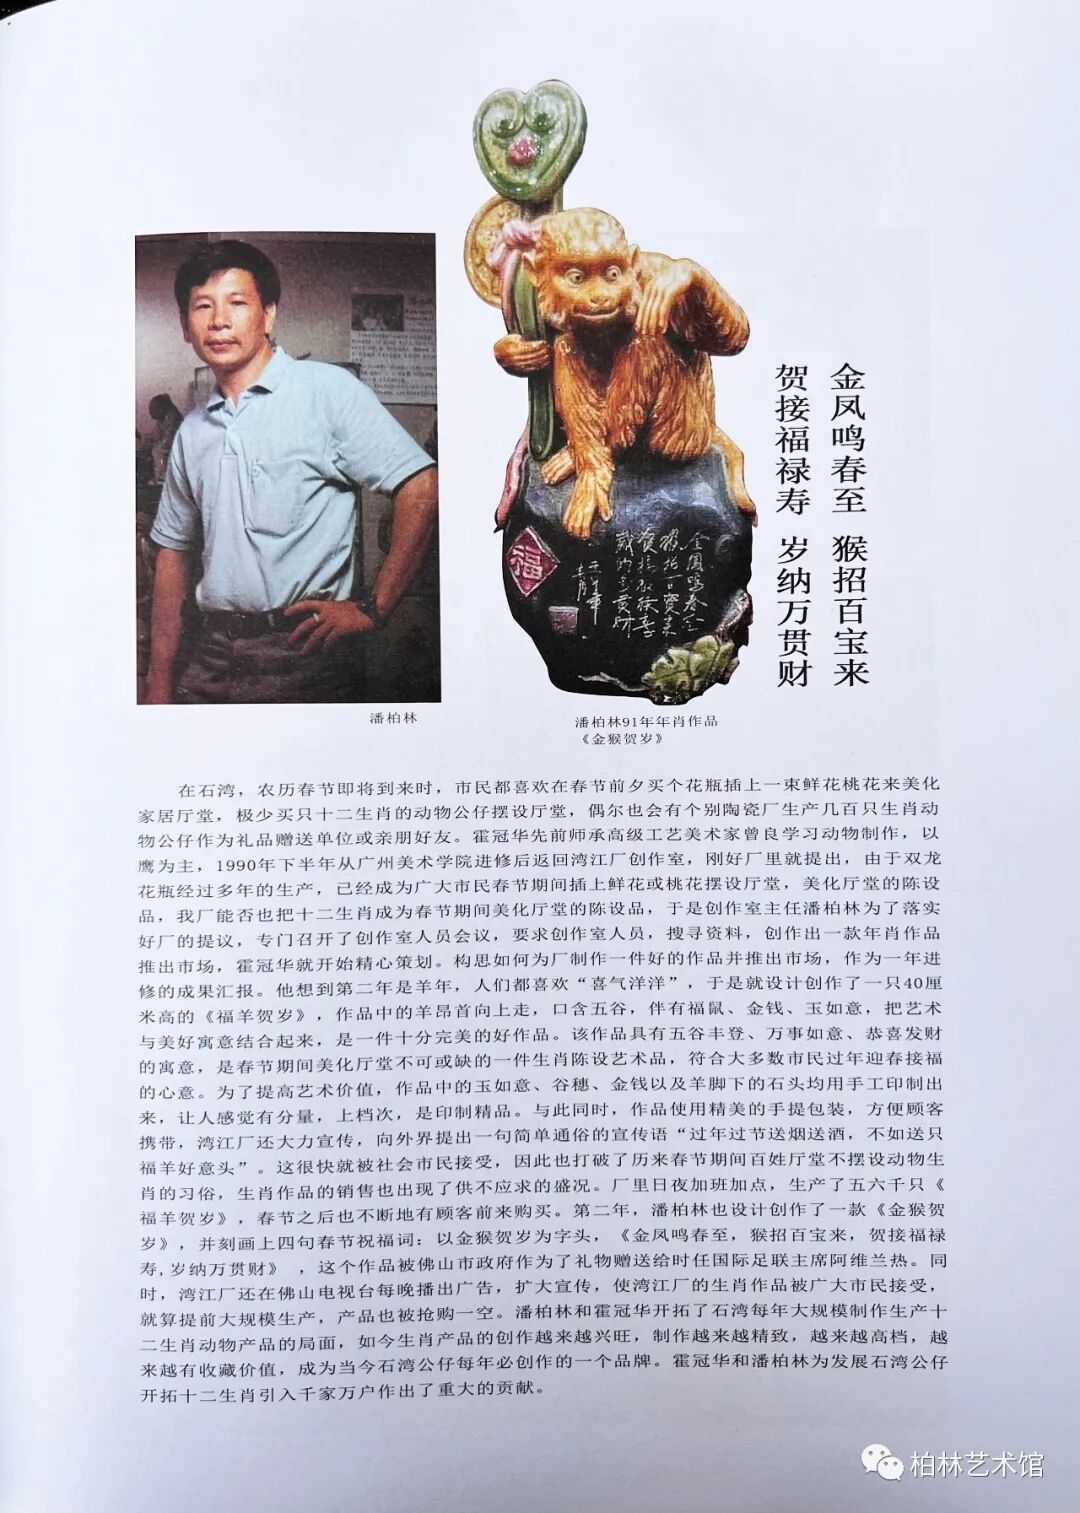 金凤鸣春至 猴招百宝来
贺接福禄寿 岁纳万贯财
福
潘柏林
潘柏林91年年肖作品
《金猴贺岁》
在石湾，农历春节即将到来时，市民都喜欢在春节前夕买个花瓶插上一束鲜花桃花来美化
家居厅堂，极少买只十二生肖的动物公仔摆设厅堂，偶尔也会有个别陶瓷厂生产几百只生肖动
物公仔作为礼品赠送单位或亲朋好友。霍冠华先前师承高级工艺美术家曾良学习动物制作，以
鹰为主，1990年下半年从广州美术学院进修后返回湾江厂创作室，刚好厂里就提出，由于双龙
花瓶经过多年的生产，已经成为广大市民春节期间插上鲜花或桃花摆设厅堂，美化厅堂的陈设
品，我厂能否也把十二生肖成为春节期间美化厅堂的陈设品，于是创作室主任潘柏林为了落实
好厂的提议，专门召开了创作室人员会议，要求创作室人员，搜寻资料，创作出一款年肖作品
推出市场，霍冠华就开始精心策划。构思如何为厂制作一件好的作品并推出市场，作为一年进
修的成果汇报。他想到第二年是羊年，人们都喜欢“喜气洋洋”，于是就设计创作了一只40厘
米高的《福羊贺岁》，作品中的羊昂首向上走，口含五谷，伴有福鼠、金钱、玉如意，把艺术
与美好寓意结合起来，是一件十分完美的好作品。该作品具有五谷丰登、万事如意、恭喜发财
的寓意，是春节期间美化厅堂不可或缺的一件生肖陈设艺术品，符合大多数市民过年迎春接福
的心意。为了提高艺术价值，作品中的玉如意、谷穗、金钱以及羊脚下的石头均用手工印制出
来，让人感觉有分量，上档次，是印制精品。与此同时，作品使用精美的手提包装，方便顾客
携带，湾江厂还大力宣传，向外界提出一句简单通俗的宣传语“过年过节送烟送酒，不如送只
福羊好意头”。这很快就被社会市民接受，因此也打破了历来春节期间百姓厅堂不摆设动物生
肖的习俗，生肖作品的销售也出现了供不应求的盛况。厂里日夜加班加点，生产了五六千只《
福羊贺岁》，春节之后也不断地有顾客前来购买。第二年，潘柏林也设计创作了一款《金猴贺
岁》，并刻画上四句春节祝福词：以金猴贺岁为字头，《金凤鸣春至，猴招百宝来，贺接福禄
寿,岁纳万贯财》 ，这个作品被佛山市政府作为了礼物赠送给时任国际足联主席阿维兰热。同
时，湾江厂还在佛山电视台每晚播出广告，扩大宣传，使湾江厂的生肖作品被广大市民接受，
就算提前大规模生产，产品也被抢购一空。潘柏林和霍冠华开拓了石湾每年大规模制作生产十
二生肖动物产品的局面，如今生肖产品的创作越来越兴旺，制作越来越精致，越来越高档，越
来越有收藏价值，成为当今石湾公仔每年必创作的一个品牌。霍冠华和潘柏林为发展石湾公仔
开拓十二生肖引入千家万户作出了重大的贡献。
柏林艺术馆